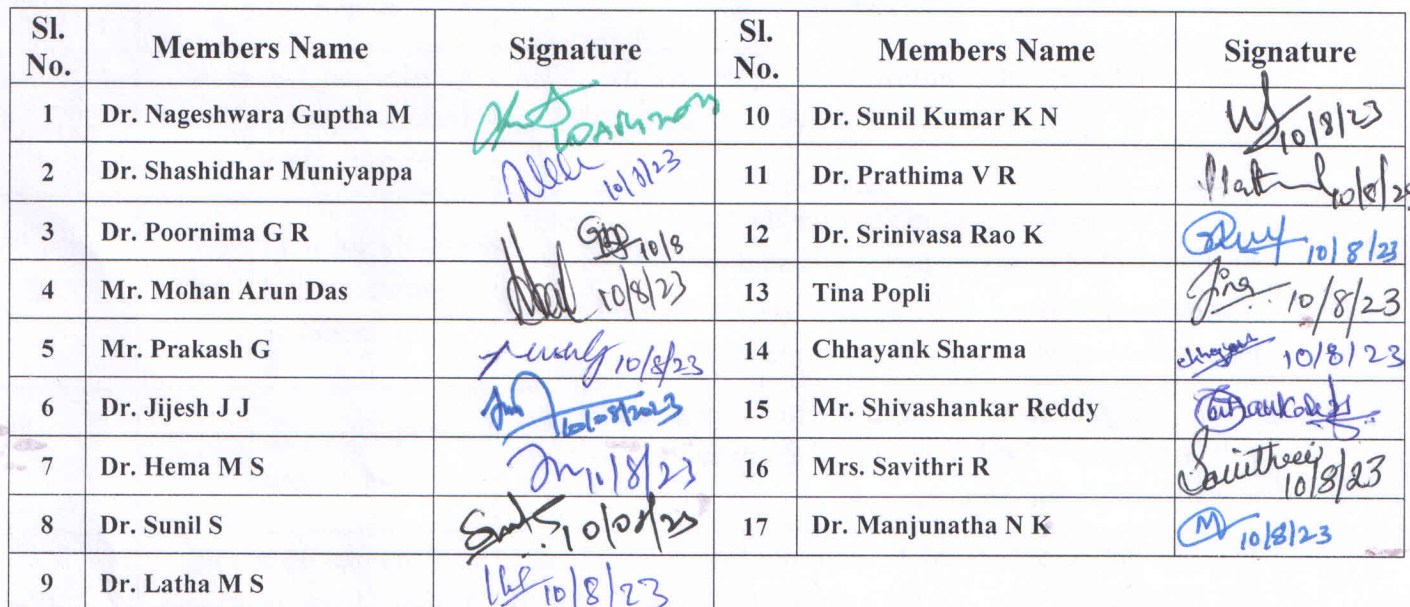 Sl. No. Members Name Signature Sl. No. Members Name Signature
1 Dr. Nageshwara Guptha M 10 Dr. Sunil Kumar K N 10/8/23
2 Dr. Shashidhar Muniyappa 10/8/23 11 Dr. Prathima V R 10/8/23
3 Dr. Poornima G R 10/8 12 Dr. Srinivasa Rao K 10/8/23
4 Mr. Mohan Arun Das 10/8/23 13 Tina Popli Tina 10/8/23
5 Mr. Prakash G 10/8/23 14 Chhayank Sharma 10/8/23
6 Dr. Jijesh J J 10/08/2023 15 Mr. Shivashankar Reddy
7 Dr. Hema M S 10/8/23 16 Mrs. Savithri R Savithri 10/8/23
8 Dr. Sunil S 10/08/23 17 Dr. Manjunatha N K M 10/8/23
9 Dr. Latha M S 10/8/23